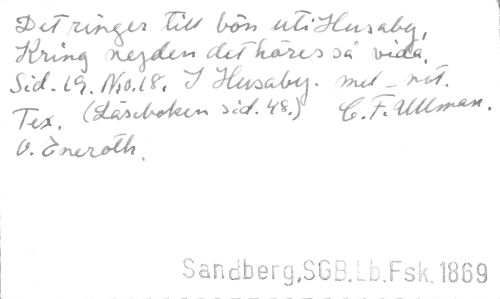 Det ringer till bön uti Husaby,
Kring nejden det höres så vida.
Sid. 19. N:o. 18. I Husaby. mel_nit.
Tex. (Läseboken sid. 48.) C. F. Ullman.
O. Eneroth.
Sandberg,SGB.Lb.Fsk.1869